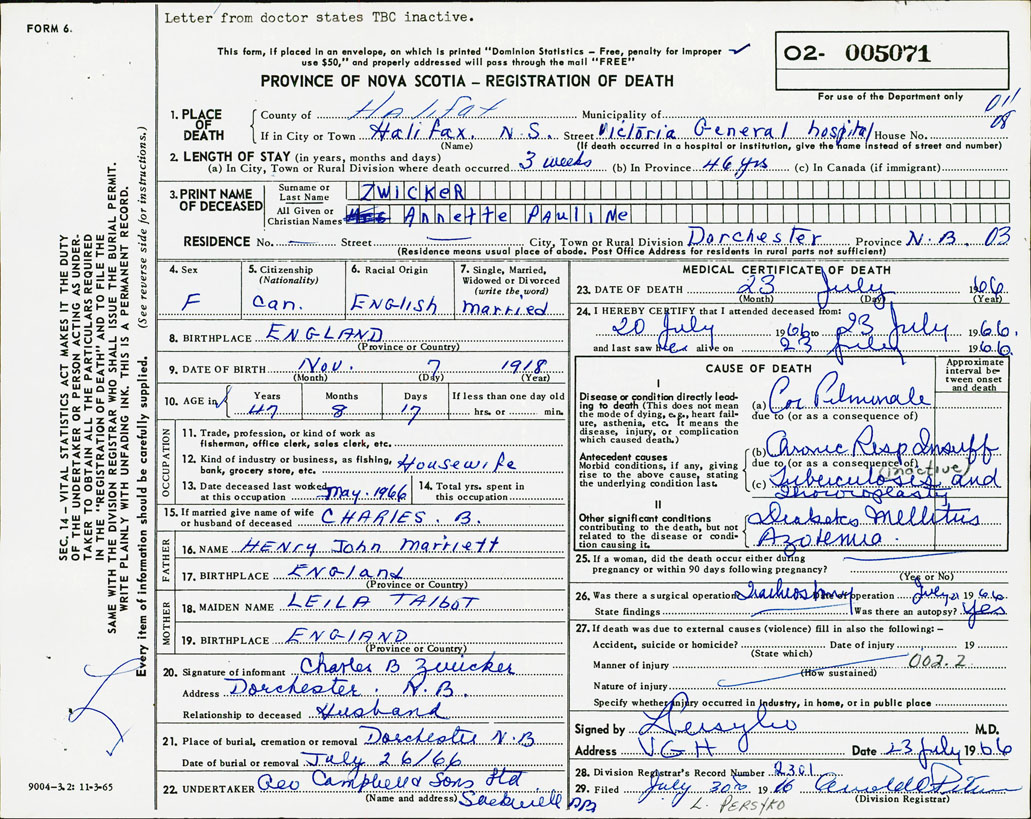 Letter from doctor states TBC inactive.
FORM 6.
This form, if placed in an envelope, on which is printed "Dominion Statistics – Free, penalty for improper
use $50," and properly addressed will pass through the mail "FREE"
O2- 005071
PROVINCE OF NOVA SCOTIA – REGISTRATION OF DEATH
For use of the Department only
011
08
1. PLACE OF DEATH
County of Halifax Municipality of
If in City or Town Halifax. N.S. Street Victoria General hospital House No.
(Name) (If death occurred in a hospital or institution, give the name instead of street and number)
2. LENGTH OF STAY (in years, months and days)
(a) In City, Town or Rural Division where death occurred 3 weeks (b) In Province 46 yrs (c) In Canada (if immigrant)
3. PRINT NAME OF DECEASED
Surname or Last Name ZWICKER
All Given or Christian Names Annette Pauline
RESIDENCE No. — Street — City, Town or Rural Division Dorchester Province N.B. 03
(Residence means usual place of abode. Post Office Address for residents in rural parts not sufficient)
4. Sex F
5. Citizenship (Nationality) Can.
6. Racial Origin ENGLISH
7. Single, Married, Widowed or Divorced (write the word) married
8. BIRTHPLACE ENGLAND
(Province or Country)
9. DATE OF BIRTH Nov. 7 1918
(Month) (Day) (Year)
10. AGE in Years 47 Months 8 Days 17 If less than one day old hrs. or min.
OCCUPATION
11. Trade, profession, or kind of work as
fisherman, office clerk, sales clerk, etc.
12. Kind of industry or business, as fishing, Housewife
bank, grocery store, etc.
13. Date deceased last worked May. 1966
at this occupation
14. Total yrs. spent in
this occupation
15. If married give name of wife
or husband of deceased CHARLES. B.
FATHER
16. NAME HENRY John Marriett
17. BIRTHPLACE ENGland
(Province or Country)
MOTHER
18. MAIDEN NAME LEILA TAlboT
19. BIRTHPLACE ENGlAND
(Province or Country)
20. Signature of informant Charles B Zwicker
Address Dorchester. N.B.
Relationship to deceased Husband
21. Place of burial, cremation or removal Dorchester N.B
Date of burial or removal July 26/66
22. UNDERTAKER Campbell Sons Ltd
(Name and address) Sackville NB
MEDICAL CERTIFICATE OF DEATH
23. DATE OF DEATH 23 July 1966
(Month) (Day) (Year)
24. I HEREBY CERTIFY that I attended deceased from:
20 July 1966 to 23 July 1966.
and last saw her alive on 23 July 1966.
CAUSE OF DEATH
Approximate interval between onset and death
I
Disease or condition directly leading to death (This does not mean the mode of dying, e.g., heart failure, asthenia, etc. It means the disease, injury, or complication which caused death.)
(a) Cor Pulmonale
due to (or as a consequence of)
Antecedent causes
Morbid conditions, if any, giving rise to the above cause, stating the underlying condition last.
(b) Chronic Resp Insuff
due to (or as a consequence of) (inactive)
(c) Tuberculosis and
Thoracoplasty
II
Other significant conditions
contributing to the death, but not related to the disease or condition causing it.
Diabetes Mellitus
Azotemia.
25. If a woman, did the death occur either during
pregnancy or within 90 days following pregnancy?
(Yes or No)
26. Was there a surgical operation Tracheostomy Date of operation July 21 1966
State findings Was there an autopsy? Yes
27. If death was due to external causes (violence) fill in also the following: –
Accident, suicide or homicide? Date of injury 19
(State which)
Manner of injury 002.2
(How sustained)
Nature of injury
Specify whether injury occurred in industry, in home, or in public place
Signed by M.D.
Address V G H Date 23 July 1966
28. Division Registrar's Record Number 2301
29. Filed July 30th 1966
(Division Registrar)
L. PERSYKO
SEC. 14 – VITAL STATISTICS ACT MAKES IT THE DUTY
OF THE UNDERTAKER OR PERSON ACTING AS UNDER-
TAKER TO OBTAIN ALL THE PARTICULARS REQUIRED
IN THE "REGISTRATION OF DEATH" AND TO FILE THE
SAME WITH THE DIVISION REGISTRAR WHO SHALL ISSUE THE BURIAL PERMIT.
WRITE PLAINLY WITH UNFADING INK. THIS IS A PERMANENT RECORD.
Every item of information should be carefully supplied. (See reverse side for instructions.)
9004–3.2: 11-3-65